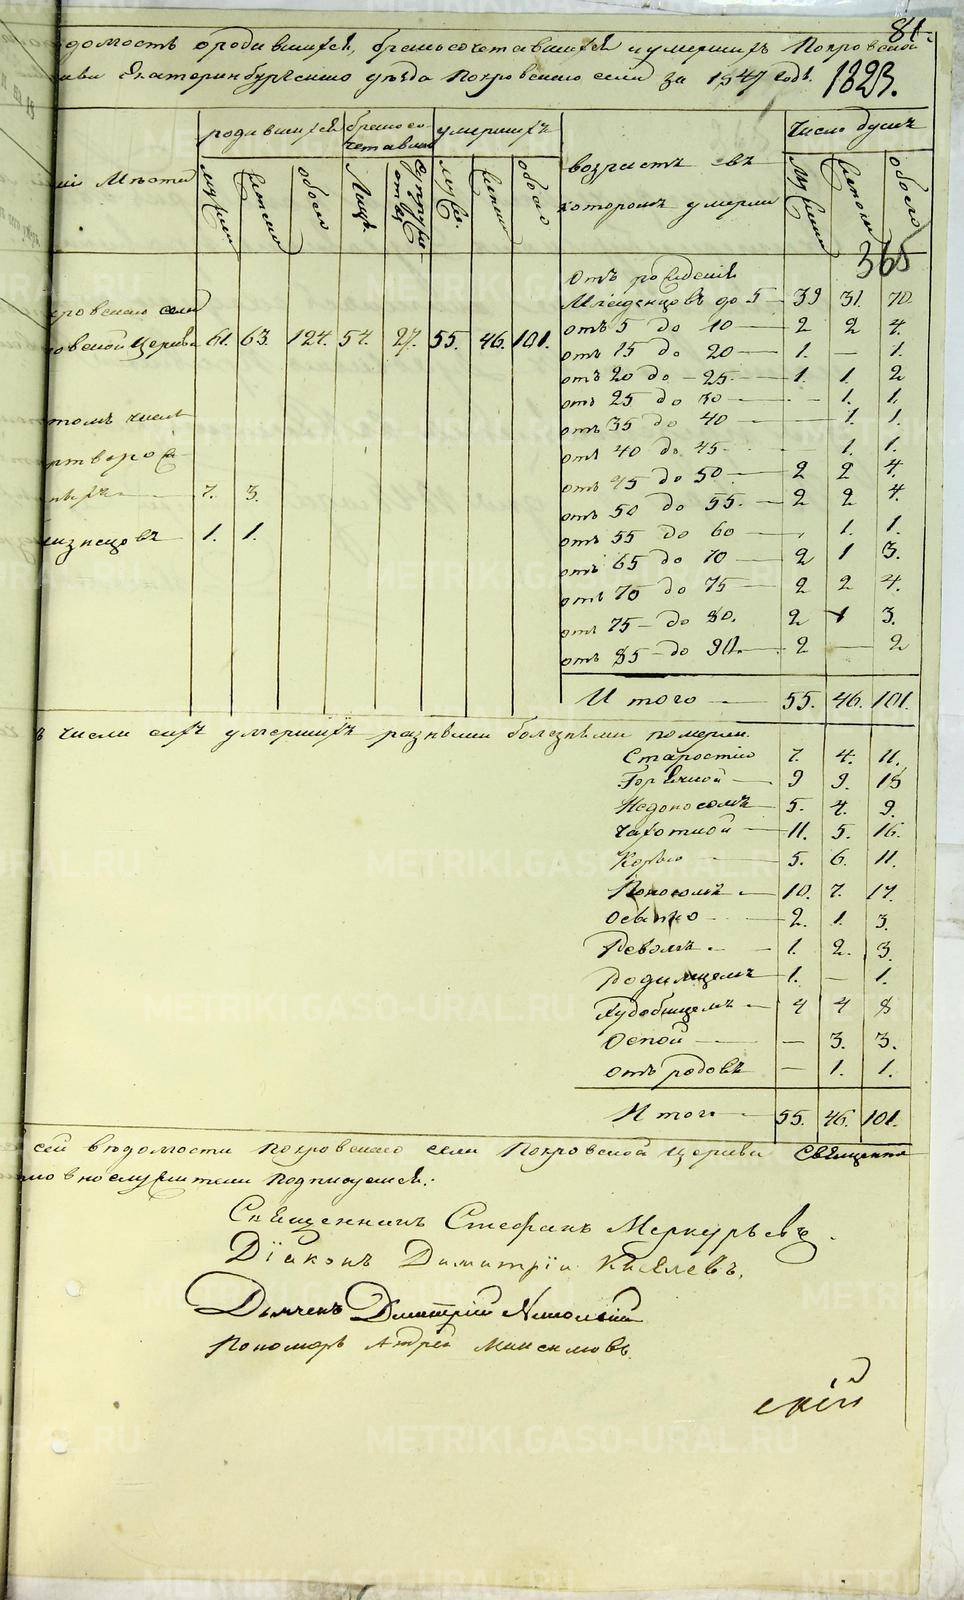 81.
домость о родившихся, бракосочетавшихся и умершихъ Покровской
кви Екатеринбургскаго уѣзда Покровскаго села за 1847 годъ. 1823.
родившихся бракосочетавших умершихъ число душъ
Мѣста мужеск женска обоего Лицъ. супружествъ мужс. женск обоего возрастъ въ которомъ умерли мужеск женска обоего
365
отъ рожденія
Младенцовъ до 5 — 39 31. 70
кровскаго села
ровской церкви 61. 63. 124. 54. 27. 55. 46. 101.
отъ 5 до 10 — 2 2 4.
отъ 15 до 20 — 1. — 1.
отъ 20 до 25. — 1. 1. 2
отъ 25 до 30 — 1. 1.
томъ числѣ
отъ 35 до 40 — 1. 1.
ртворо
отъ 40 до 45. 1. 1.
7. 3.
отъ 45 до 50. — 2 2 4.
отъ 50 до 55. — 2 2 4.
лизнецовъ — 1. 1.
отъ 55 до 60 1. 1.
отъ 65 до 70 — 2 1 3.
отъ 70 до 75 — 2 2 4.
отъ 75 — до 80. 2 1 3.
отъ 85 — до 90. — 2 — 2
Итого — 55. 46. 101.
ъ числѣ сихъ умершихъ разными болезнями померли.
Старостію 7. 4. 11.
Горячкой — 9 9. 18
Недоноскомъ 5. 4. 9.
Чахоткой — 11. 5. 16.
Корью — 5. 6. 11.
Поносомъ — 10. 7. 17.
2. 1. 3.
Ревомъ. — 1. 2. 3.
Родимцемъ 1. — 1.
Худобищемъ — 4 4 8
Оспой — — 3. 3.
отъ родовъ — 1. 1.
Итого — 55. 46. 101.
сей вѣдомости Покровскаго села Покровской церкви Священно
церковнослужители подписуемся:
Священникъ Стефанъ Меркурьевъ.
Діаконъ Димитрій Киселевъ.
Дьячекъ Дмитрій Никольскій
Пономарь Андрей Максимовъ.
скій
METRIKI.GASO-URAL.RU